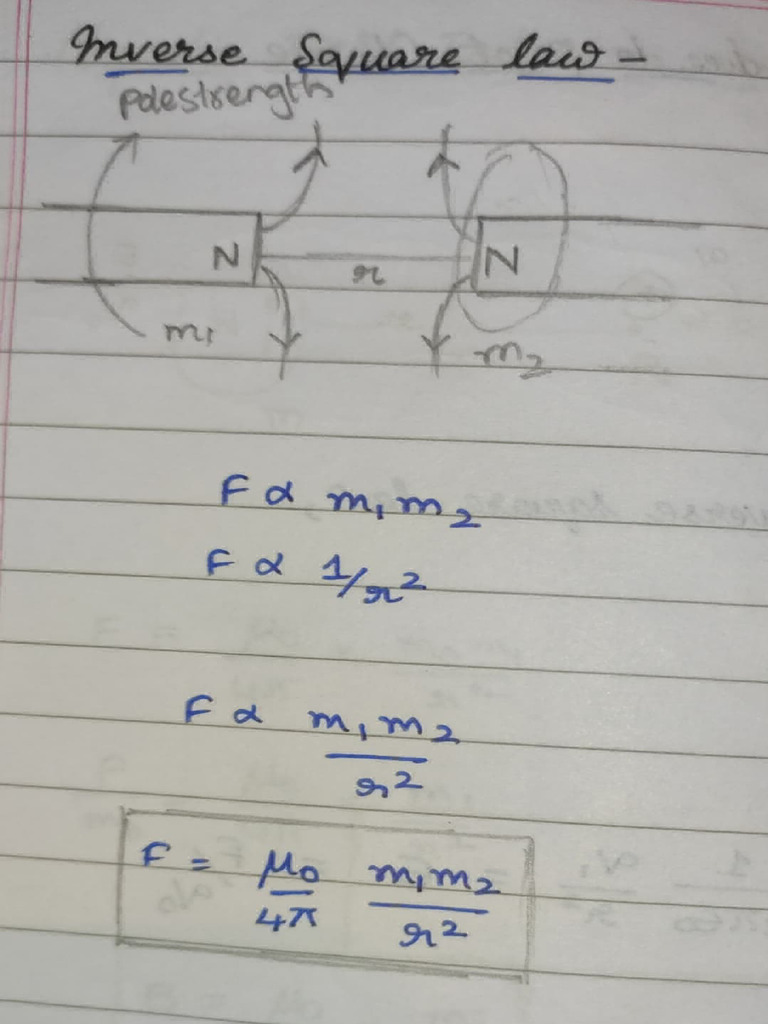 Inverse Square law –
polestrength
N r N
m₁ m₂
F ∝ m₁m₂
F ∝ 1/r²
F ∝ m₁m₂/r²
F = μ₀/4π m₁m₂/r²